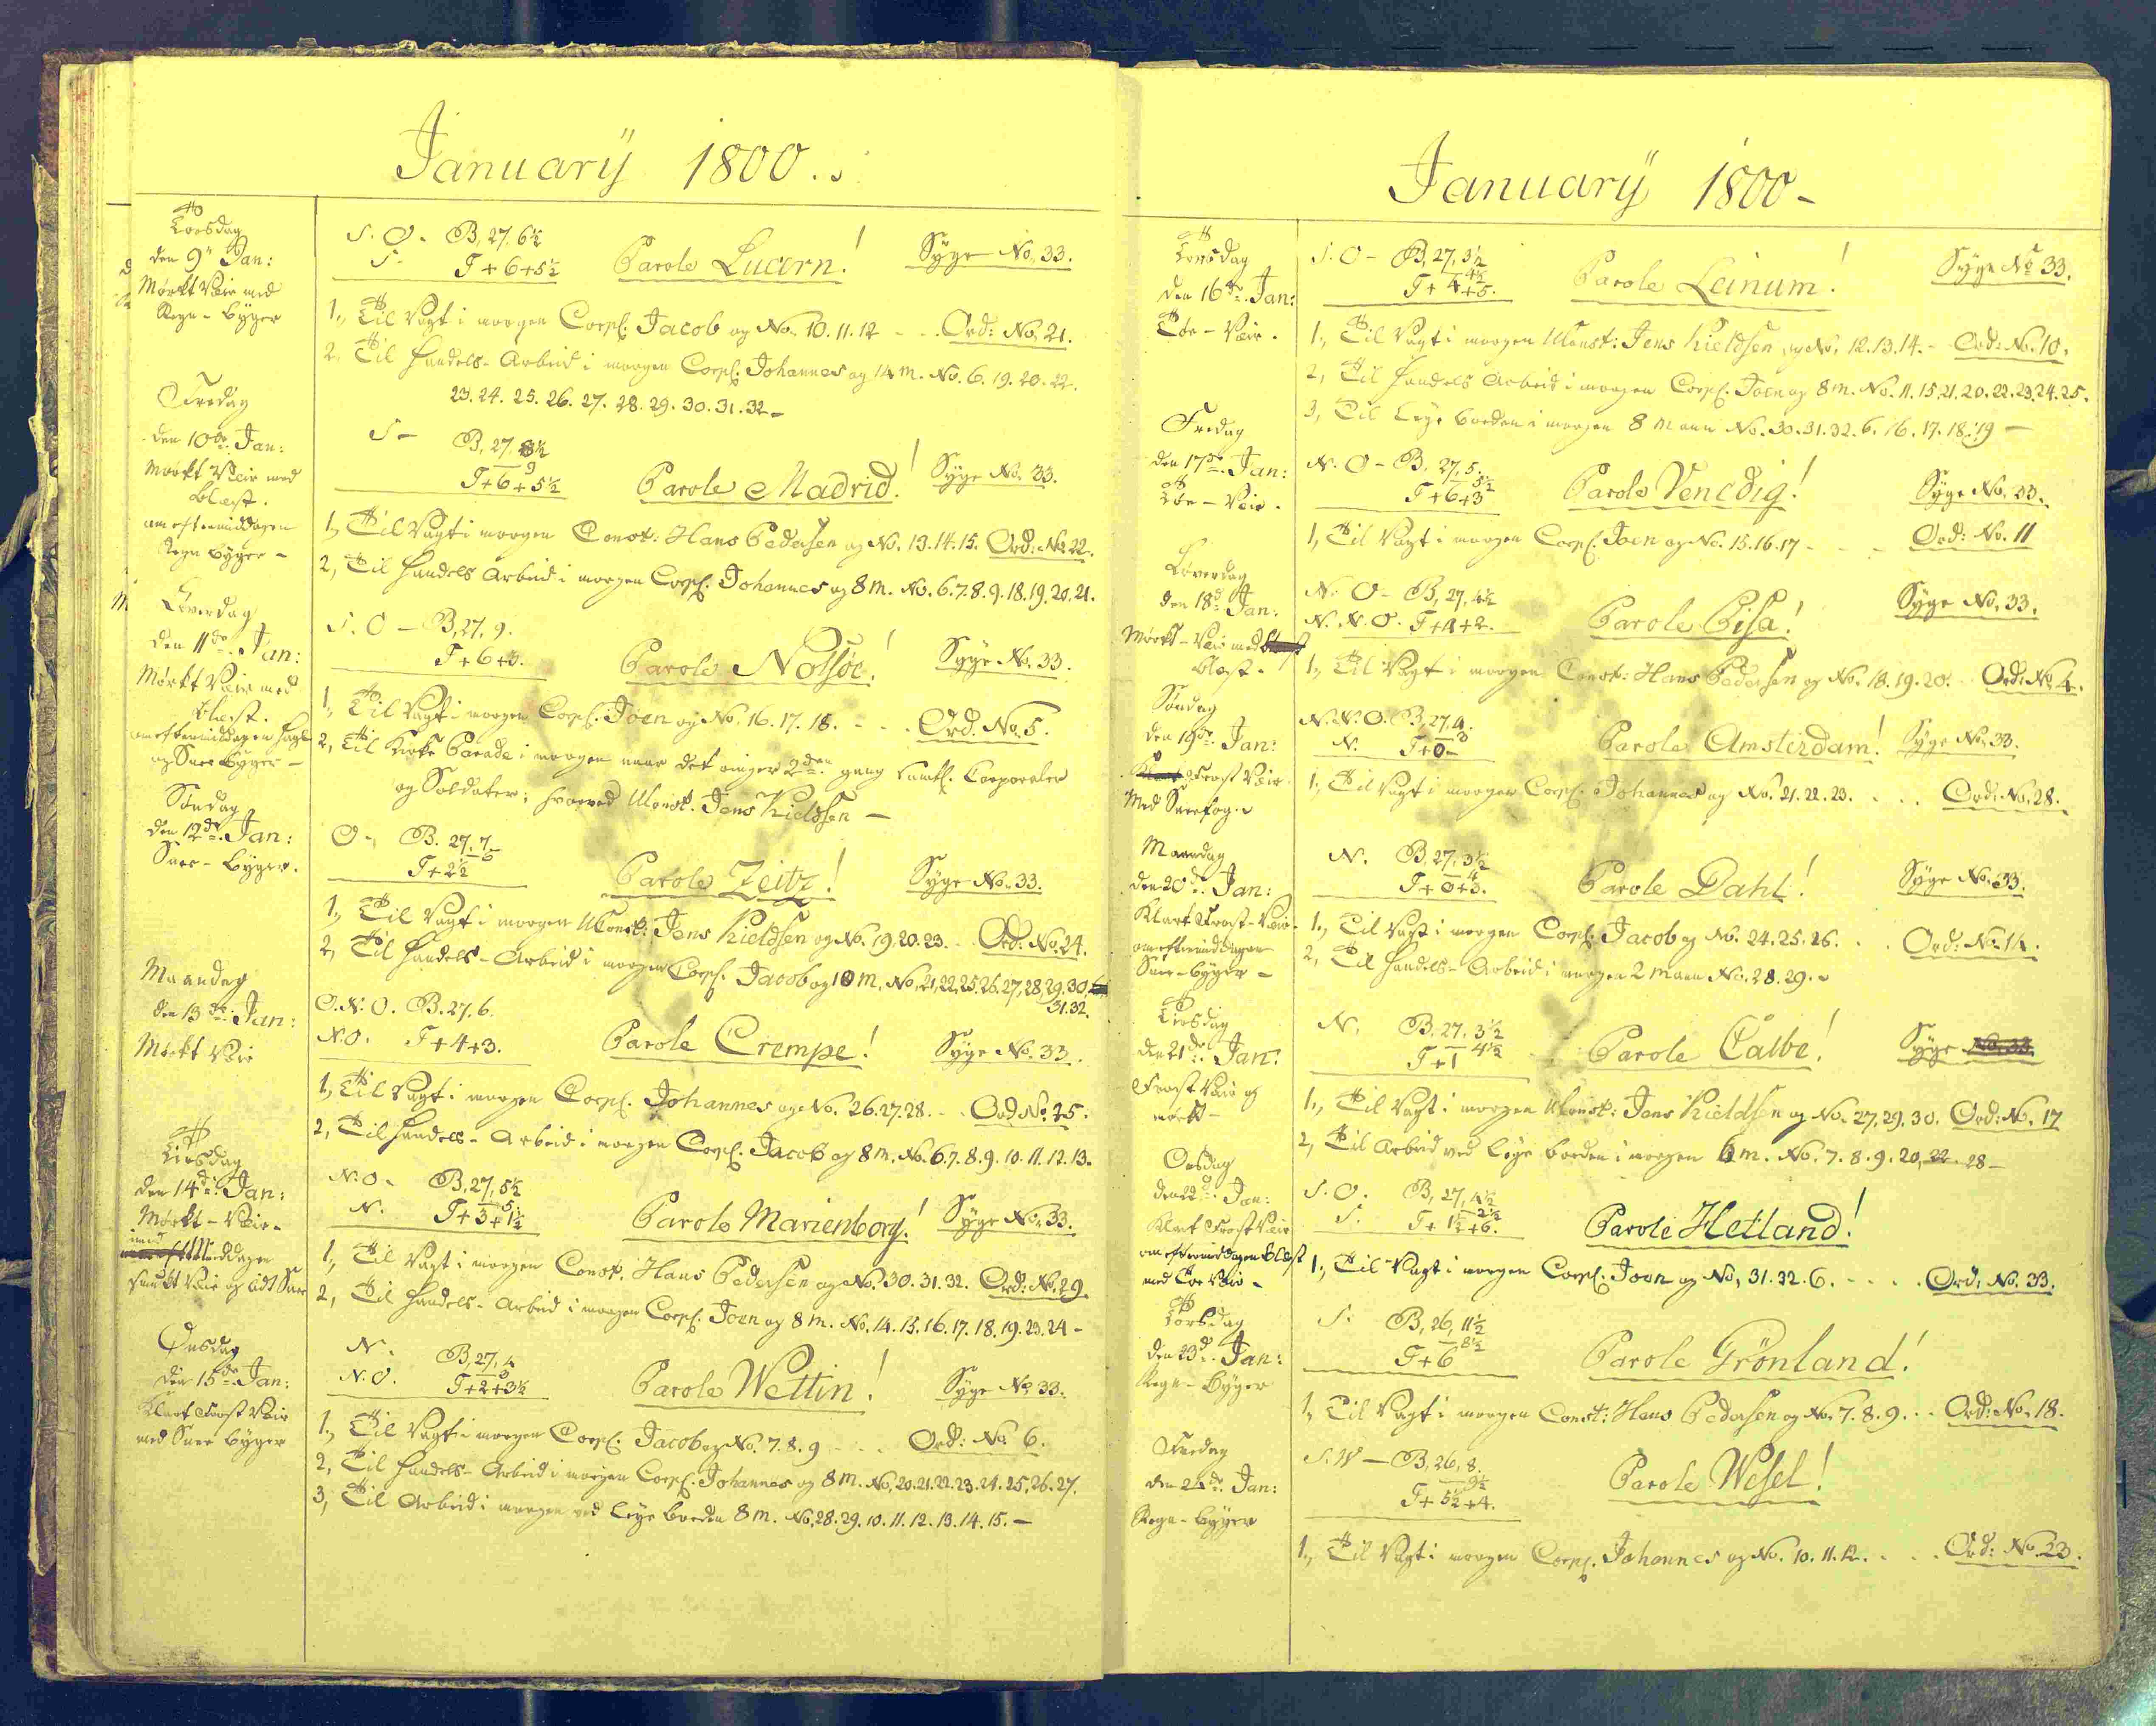 Januarÿ 1800.
Torsdag
den 9de Jan:
Mørkt Veir med
Regn-byger
S. O. B, 27, 6½
S. T+6+5½ Parole Lucern! Syge No, 33.
1, Til Vagt i morgen Corpl. Jacob og No. 10. 11. 12 - - Ord: No, 21.
2, Til Handels-Arbeid i morgen Corpl. Johannes og 14 m. No. 6. 19. 20. 22.
23. 24. 25. 26. 27. 28. 29. 30. 31. 32 -
Fredag
den 10de Jan:
Mørkt Veir med
blæst.
om eftermiddagen
Regn byger -
S - B, 27, 8½
9
T+6+5½ Parole Madrid! Syge No. 33.
1, Til Vagt i morgen Const: Hans Pedersen og No. 13. 14. 15. Ord: No 22.
2, Til Handels Arbeid i morgen Corpl. Johannes og 8 m. No. 6. 7. 8. 9. 18. 19. 20. 21.
Løverdag
den 11de Jan:
Mørkt Veir med
blæst.
om eftermiddagen Hagl
og Snee byger -
S. O - B, 27, 9.
T+6+3. Parole Nolsøe! Syge No. 33.
1, Til Vagt i morgen Corpl. Joen og No. 16. 17. 18. - - Ord. No. 5.
2, Til Kirke Parade i morgen naar det ringer 2den gang samtl. Corporaler
og Soldater; hvorved UConst. Jens Kieldsen -
Søndag
den 12de Jan:
Snee-byger.
O - B. 27, 7
6
T+2½ Parole Zeitz! Syge No. 33.
1, Til Vagt i morgen UConst: Jens Kieldsen og No. 19. 20. 23. - Ord: No. 24.
2, Til Handels-Arbeid i morgen Corpl. Jacob og 10 m. No, 21, 22, 25. 26. 27, 28, 29. 30,
31. 32.
Maandag
den 13de Jan:
Mørkt Veir
O. N. O. B. 27. 6.
N. O. T+4+3. Parole Crempe! Syge No. 33.
1, Til Vagt i morgen Corpl. Johannes og No. 26. 27. 28. - - Ord No. 25.
2, Til Handels-Arbeid i morgen Corpl. Jacob og 8 m. No. 6. 7. 8. 9. 10. 11. 12. 13.
Tirsdag
den 14de Jan:
Mørkt-Veir-
Middagen
smukt Veir og lidt Snee
N. O - B, 27, 5½
5
N. T+3+1½ Parole Marienborg! Syge No. 33.
1, Til Vagt i morgen Const. Hans Pedersen og No. 30. 31. 32. Ord: No, 29.
2, Til Handels-Arbeid i morgen Corpl. Joen og 8 m. No. 14. 15. 16. 17. 18. 19. 23. 24 -
Onsdag
den 15de Jan:
Klart Frost Veir
med Snee byger
N. B, 27, 4
3
N. O. T+2+3½ Parole Wettin! Syge No. 33.
1, Til Vagt i morgen Corpl. Jacob og No. 7. 8. 9 - - - Ord: No 6.
2, Til Handels-Arbeid i morgen Corpl. Johannes og 8 m. No, 20. 21. 22. 23. 24. 25, 26. 27.
3, Til Arbeid i morgen ved Leye boeden 8 m. No, 28. 29. 10. 11. 12. 13. 14. 15. -
Januarÿ 1800 -
Torsdag
den 16de Jan:
Tøe-Veir.
S. O - B, 27, 3½
4½
T+4+5. Parole Leinum! Syge No 33.
1, Til Vagt i morgen UConst: Jens Kieldsen og No. 12. 13. 14. - Ord: No. 10.
2, Til Handels Arbeid i morgen Corpl. Joen og 8 m. No. 11. 15. 21. 20. 22. 23. 24. 25.
3, Til Leye boeden i morgen 8 Mann No. 30. 31. 32. 6. 16. 17. 18. 19 -
Fredag
den 17de Jan:
Tøe-Veir.
N. O - B. 27, 5.
5½
T+6+3 Parole Venedig! Syge No. 33.
1, Til Vagt i morgen Corpl. Joen og No. 15. 16. 17 - - - Ord: No. 11
Løverdag
den 18de Jan:
Mørkt-Veir med
blæst.
N. O - B, 27, 4½
N. N. O. T+1+2. Parole Pisa! Syge No, 33.
1, Til Vagt i morgen Const: Hans Pedersen og No. 18. 19. 20. - Ord: No, 4.
Søndag
den 19de Jan:
Frost Veir
Med Sneefog.
N. N. O. B, 27, 4.
3
N. T+0- Parole Amsterdam! Syge No. 33.
1, Til Vagt i morgen Corpl. Johannes og No. 21. 22. 23. . . . Ord: No. 28.
Maandag
den 20de Jan:
Klart Frost-Veir
om eftermiddagen
Snee-byger -
N. B, 27, 3½
4
T+0+3. Parole Dahl! Syge No, 33.
1, Til Vagt i morgen Corpl. Jacob og No. 24. 25. 26. . . Ord: No. 14.
2, Til Handels-Arbeid i morgen 2 Mann No. 28. 29. -
Tirsdag
den 21de Jan:
Frost Veir og
mørkt-
N. B. 27, 3½
4½
T+1 Parole Calbe! Syge No. 33.
1, Til Vagt i morgen UConst: Jens Kieldsen og No. 27. 29. 30. Ord: No, 17
2, Til Arbeid ved Leye boeden i morgen 6 m. No. 7. 8. 9. 20, 22. 28 -
Onsdag
den 22de Jan:
Klart Frost Veir
om eftermiddagen blæst
med Tøe Veir -
S. O. B, 27, 4½
2½
S. T+1½+6. Parole Hetland!
1, Til Vagt i morgen Corpl. Joen og No, 31. 32. 6. - - - Ord: No. 33.
Torsdag
den 23de Jan:
Regn-byger
S. B, 26, 11½
8½
T+6 Parole Grönland!
1, Til Vagt i morgen Const: Hans Pedersen og No. 7. 8. 9. . . Ord: No. 18.
Fredag
den 24de Jan:
Regn-byger
S. W - B, 26, 8.
9½
T+5½+4. Parole Wesel!
1, Til Vagt i morgen Corpl. Johannes og No. 10. 11. 12. . . . Ord: No. 23.